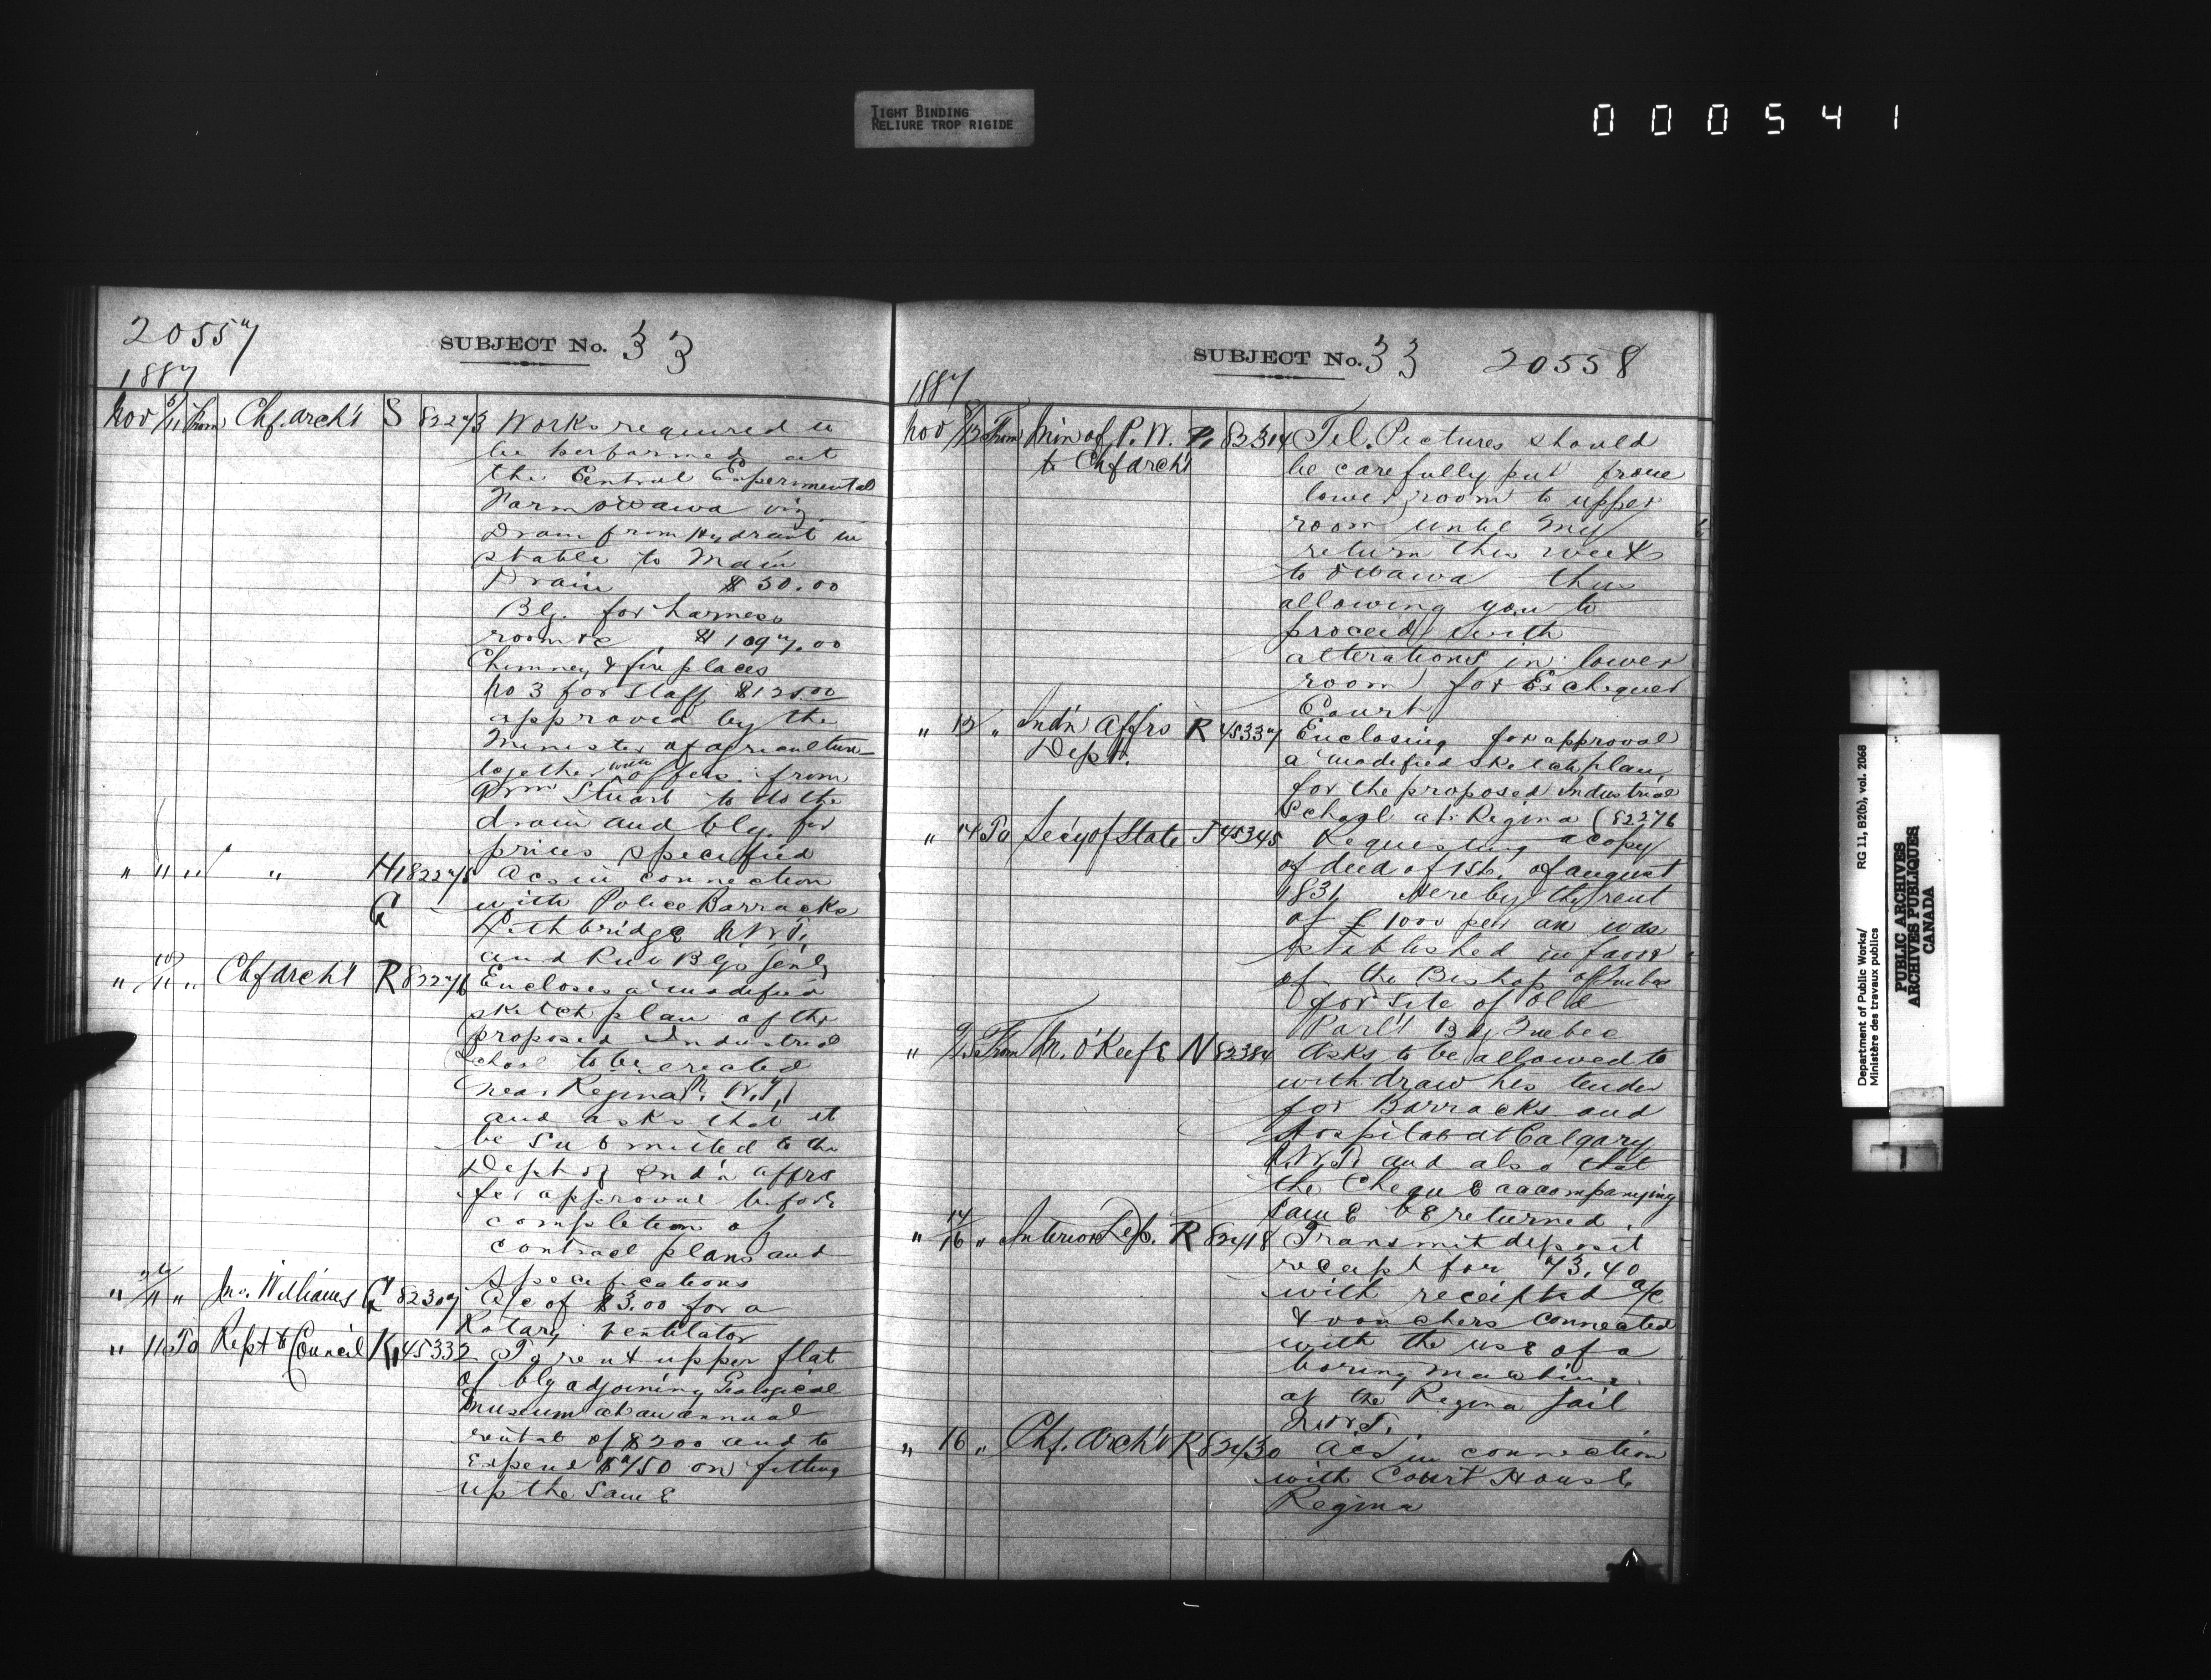 TIGHT BINDING
RELIURE TROP RIGIDE
000541
20557
SUBJECT No. 33
1887
Nov 5/11 From Chf. Arch't S 82273 Works required to
be performed at
the Central Experimental
Farm Ottawa viz
Drain from Hydrant in
stable to Main
Drain $30.00
Blg. for harness
room &c $1097.00
Chimney & fire places
No 3 for Staff $125.00
approved by the
Minister of Agriculture
together with offers from
Stuart to do the
drain and blg. for
prices specified
" " " " H 82275 Acs in connection
G with Police Barracks
Lethbridge N.W.T.
and Pub Blgs Genly
" 10/11 " Chf Arch't R 82276 Encloses a modified
sketch plan of the
proposed Industrial
School to be erected
near Regina N.W.T.
and asks that it
be submitted to the
Dept of Ind'n Affrs
for approval before
completion of
contract plans and
specifications
" /11 " Jno. Williams G 82307 A/c of $3.00 for a
Rotary ventilator
" 11 To Rept to Council K 45332 To rent upper flat
of blg adjoining Geological
Museum at an annual
rental of $200 and to
expend $750 on fitting
up the same
SUBJECT No. 33 20558
1887
Nov 8/12 From Min of P. W. P. 82314 Tel. Pictures should
to Chf Arch't be carefully put from
lower room to upper
room until my
return this week
to Ottawa thus
allowing you to
proceed with
alterations in lower
room for Exchequer
Court
" 12 " Ind'n Affrs R 45337 Enclosing for approval
Dept. a modified sketch plan
for the proposed Industrial
School at Regina (82276
" 14 To Sec'y of State J 45345 Requesting a copy
of deed of 1st. of August
1831 Hereby the rent
of £1000 per an was
established in favor
of the Bishop of Quebec
for site of Old
Parl't Blg Quebec
" 9/15 From M. O'Keefe N 82384 Asks to be allowed to
withdraw his tender
for Barracks and
Hospital at Calgary
N.W.T. and also that
the Cheque accompanying
same be returned.
" 14/16 " Interior Dep. R 82418 Transmit deposit
receipt for 73.40
with receipted a/c
& vouchers connected
with the use of a
boring machine
at the Regina Jail
N.W.T.
" 16 " Chf. Arch't R 82430 Acs in connection
with Court House
Regina
Department of Public Works/ RG 11, B2(b), vol. 2068
Ministère des travaux publics
PUBLIC ARCHIVES
ARCHIVES PUBLIQUES
CANADA